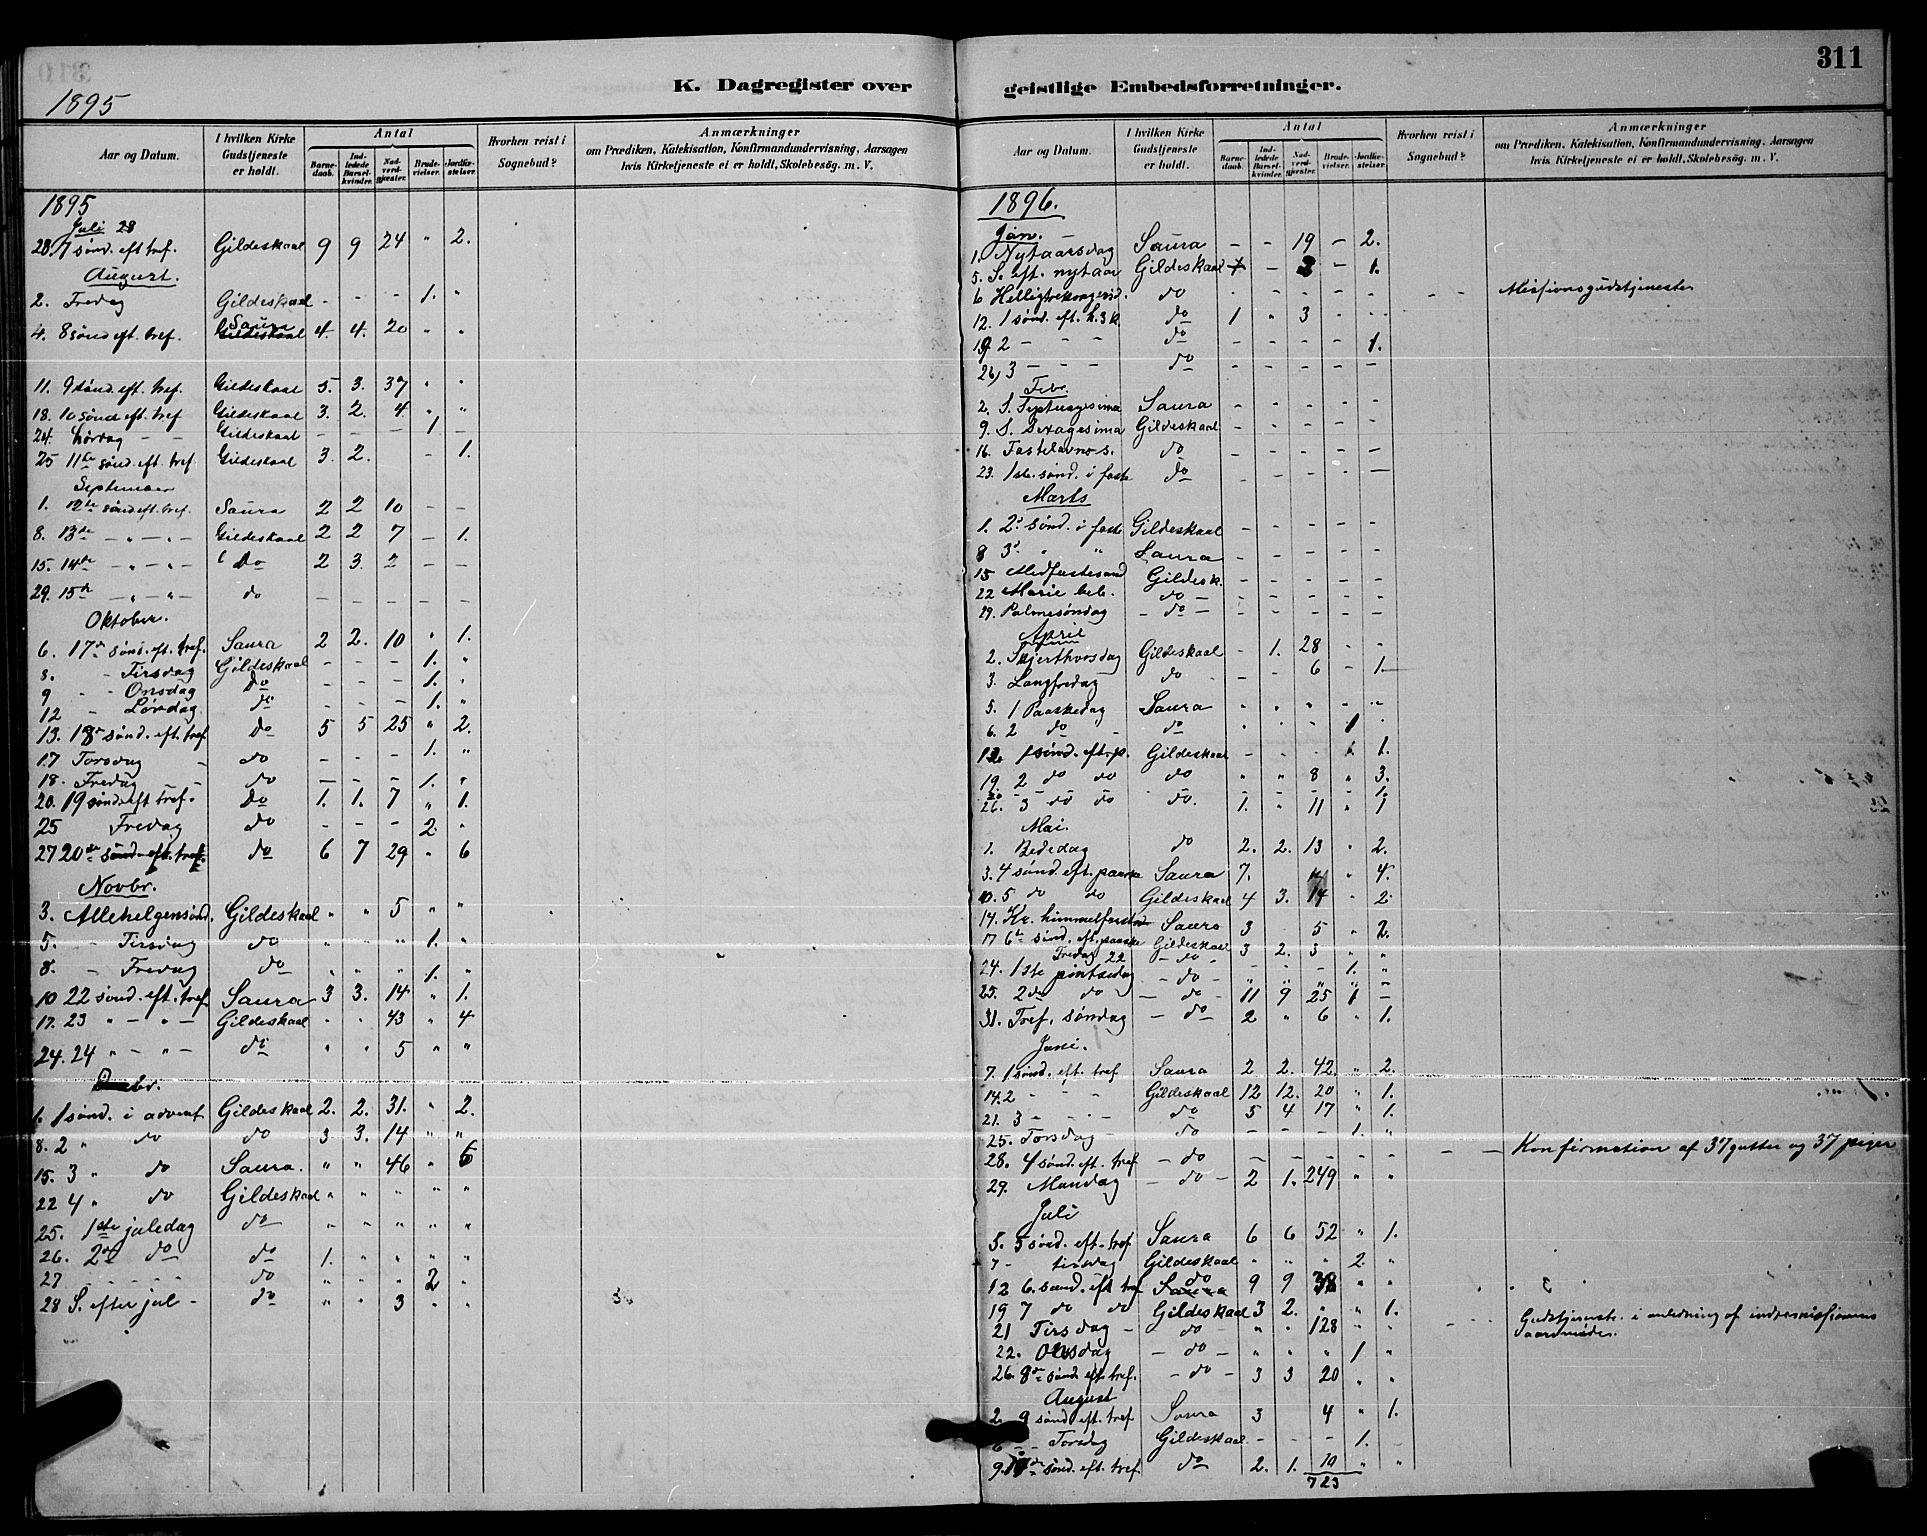 311
K. Dagregister over geistlige Embedsforretninger.
1895
Aar og Datum. | I hvilken Kirke Gudstjeneste er holdt. | Antal | Barne-daab. | Ind-ledede Barsel-kvinder. | Nad-verd-gjæster. | Brude-vielser. | Jordfæ-stelser. | Hvorhen reist i Sognebud? | Anmærkninger om Prædiken, Katekisation, Konfirmandundervisning, Aarsagen hvis Kirketjeneste ei er holdt, Skolebesøg. m. V.
1895
Juli 28
28. 7 sønd. eft. tref. Gildeskaal 9 9 24 " 2.
August.
2. Fredag Gildeskaal - - - 1. "
4. 8 sønd eft. tref. Saura 4. 4. 20 " "
11. 9 sønd. eft. tref. Gildeskaal 5. 3. 37 " "
18. 10 sønd eft. tref Gildeskaal 3. 2. 4 " "
24. Lørdag - - Gildeskaal - - - 1 -
25 11te sønd. eft. tref. Gildeskaal 3. 2. - 1.
September
1. 12te sønd eft. tref. Saura 2 2 10 - -
8. 13de - " - " - Gildeskaal 2 2 7 - 1.
15. 14de - " - " - Do 2 3. 2 - -
29. 15de - " - " - do - - - - -
Oktober.
6. 17de sønd. eft. tref. Saura 2 2. 10 " 1.
8. - Tirsdag Gildeskaal - - - 1. "
9 - Onsdag Do - - - 1. "
12 - Lørdag do - - - 1. "
13. 18de sønd. eft. tref Do 5 5 25 " 2.
17 Torsdag - do - - - 1. "
18. Fredag - - do - - - 1. "
20. 19 sønd. eft tref. Do 1. 1. 7 " 1.
25 Fredag do - - - 2. "
27 20de sønd. eft. tref. do 6 7 29 " 6
Novbr.
3. Allehelgensønd. Gildeskaal " " 5 " "
5. - Tirsdag do " " " 1. "
8. - Fredag do " " " 1. "
10 22 sønd. eft. tref Saura 3 3. 14 " 1.
17. 23 " - " - Gildeskaal " " 43 " 4
24. 24 " - " - do " " 5 " "
Decbr.
1. 1 sønd. i advent Gildeskaal 2. 2. 31. " 2.
8. 2 " do do 3 3. 14 " "
15. 3 " do Saura. " " 46 " 6
22 4 " do Gildeskaal " " " " "
25. 1ste juledag do " " " " "
26. 2den do do 1. " " " "
27 - - - - do " " " 2 "
28 S. efter jul - do " " 3 " "
Aar og Datum. | I hvilken Kirke Gudstjeneste er holdt. | Antal | Barne-daab. | Ind-ledede Barsel-kvinder. | Nad-verd-gjæster. | Brude-vielser. | Jordfæ-stelser. | Hvorhen reist i Sognebud? | Anmærkninger om Prædiken, Katekisation, Konfirmandundervisning, Aarsagen hvis Kirketjeneste ei er holdt, Skolebesøg. m. V.
1896.
Jan.
1. Nytaarsdag Saura - - 19 - 2.
5. S. eft. nytaar Gildeskaal - - - 1.
6 Helligtrekongersd. do - - - - - - - Missionsgudstjeneste
12. 1 sønd. eft. h. 3 k. do 1 " 3 - -
19 2 - - - do - - - - 1.
26, 3 - - - do - - - - -
Febr.
2. S. Septuagesima Saura - - - - -
9. S. Sexagesima Gildeskaal - - - - -
16. Fastelavns s. do - - - - -
23. 1ste sønd. i faste do - - - - -
Marts
1. 2. sønd. i faste Gildeskaal - - - - -
8 3. " " Saura - - - - -
15 Midfastesønd Gildesk. - - - - -
22 Marie beb. - do - - - - - -
29. Palmesøndag - do - - - - - -
April
2. Skjerthorsdag Gildeskaal - 1. 28 - -
3. Langfredag do - - 6 - 1.
5. 1 Paaskedag Saura " " " " "
6. 2 do do " " " 1 "
12. 1 sønd. eft. p. Gildeskaal - - - 1.
19. 2 do do do " " 8 " 3.
20 - - - - 1.
26. 3 do do do. 1. " 11 " 1
Mai.
1. Bededag do 2. 2. 13 " 2.
3. 4 sønd. eft. paaske Saura 7. " 4.
10. 5 do do Gildeskaal 4 3. 14 " 2.
14. Kr. himmelfartsd Saura 3 5 " 2.
17 6te sønd. eft. paaske Gildeskaal 3 2. 3 " "
Fredag 22 - do - - - - 1. "
24. 1ste pintsedag - do - " " " " "
25. 2den do - do - 11 9 25 1 -
31. Tref. søndag - do 2 " 6 " 1.
Juni.
7. 1 sønd. eft. tref Saura 2 2. 42. " 2.
14. 2 - - - Gildeskaal 12 12. 20 " 1.
21. 3 - - - do 5 4 17 " 1.
25. Torsdag - do - - - 1. "
28. 4 sønd. eft. tref - do - - - - - - - Konfirmation af 37 gutter og 37 piger
29. Mandag - do - 2 1. 249 " "
Juli
5. 5 sønd. eft. tref. Saura 6 6 52 " 1.
7 - tirsdag Gildeskaal " " " 2. "
12 6. sønd. eft tref do 9 9 38 " "
19 7 do do Gildeskaal 3 2. " " 1.
21 Tirsdag - - do - " " 128 " " - - - Gudstjeneste i anledning af indremissionens
aarsmøde.
22. Onsdag - do - " " " 1 "
26. 8de sønd. eft. tref. - do - 3 3 20 " "
August
2. 9 sønd. eft. tref Saura 3 4 " 1.
6 - - Torsdag Gildeskaal - - - 1.
9. 10de sønd. eft. tref do 2. 1. 10 " "
723